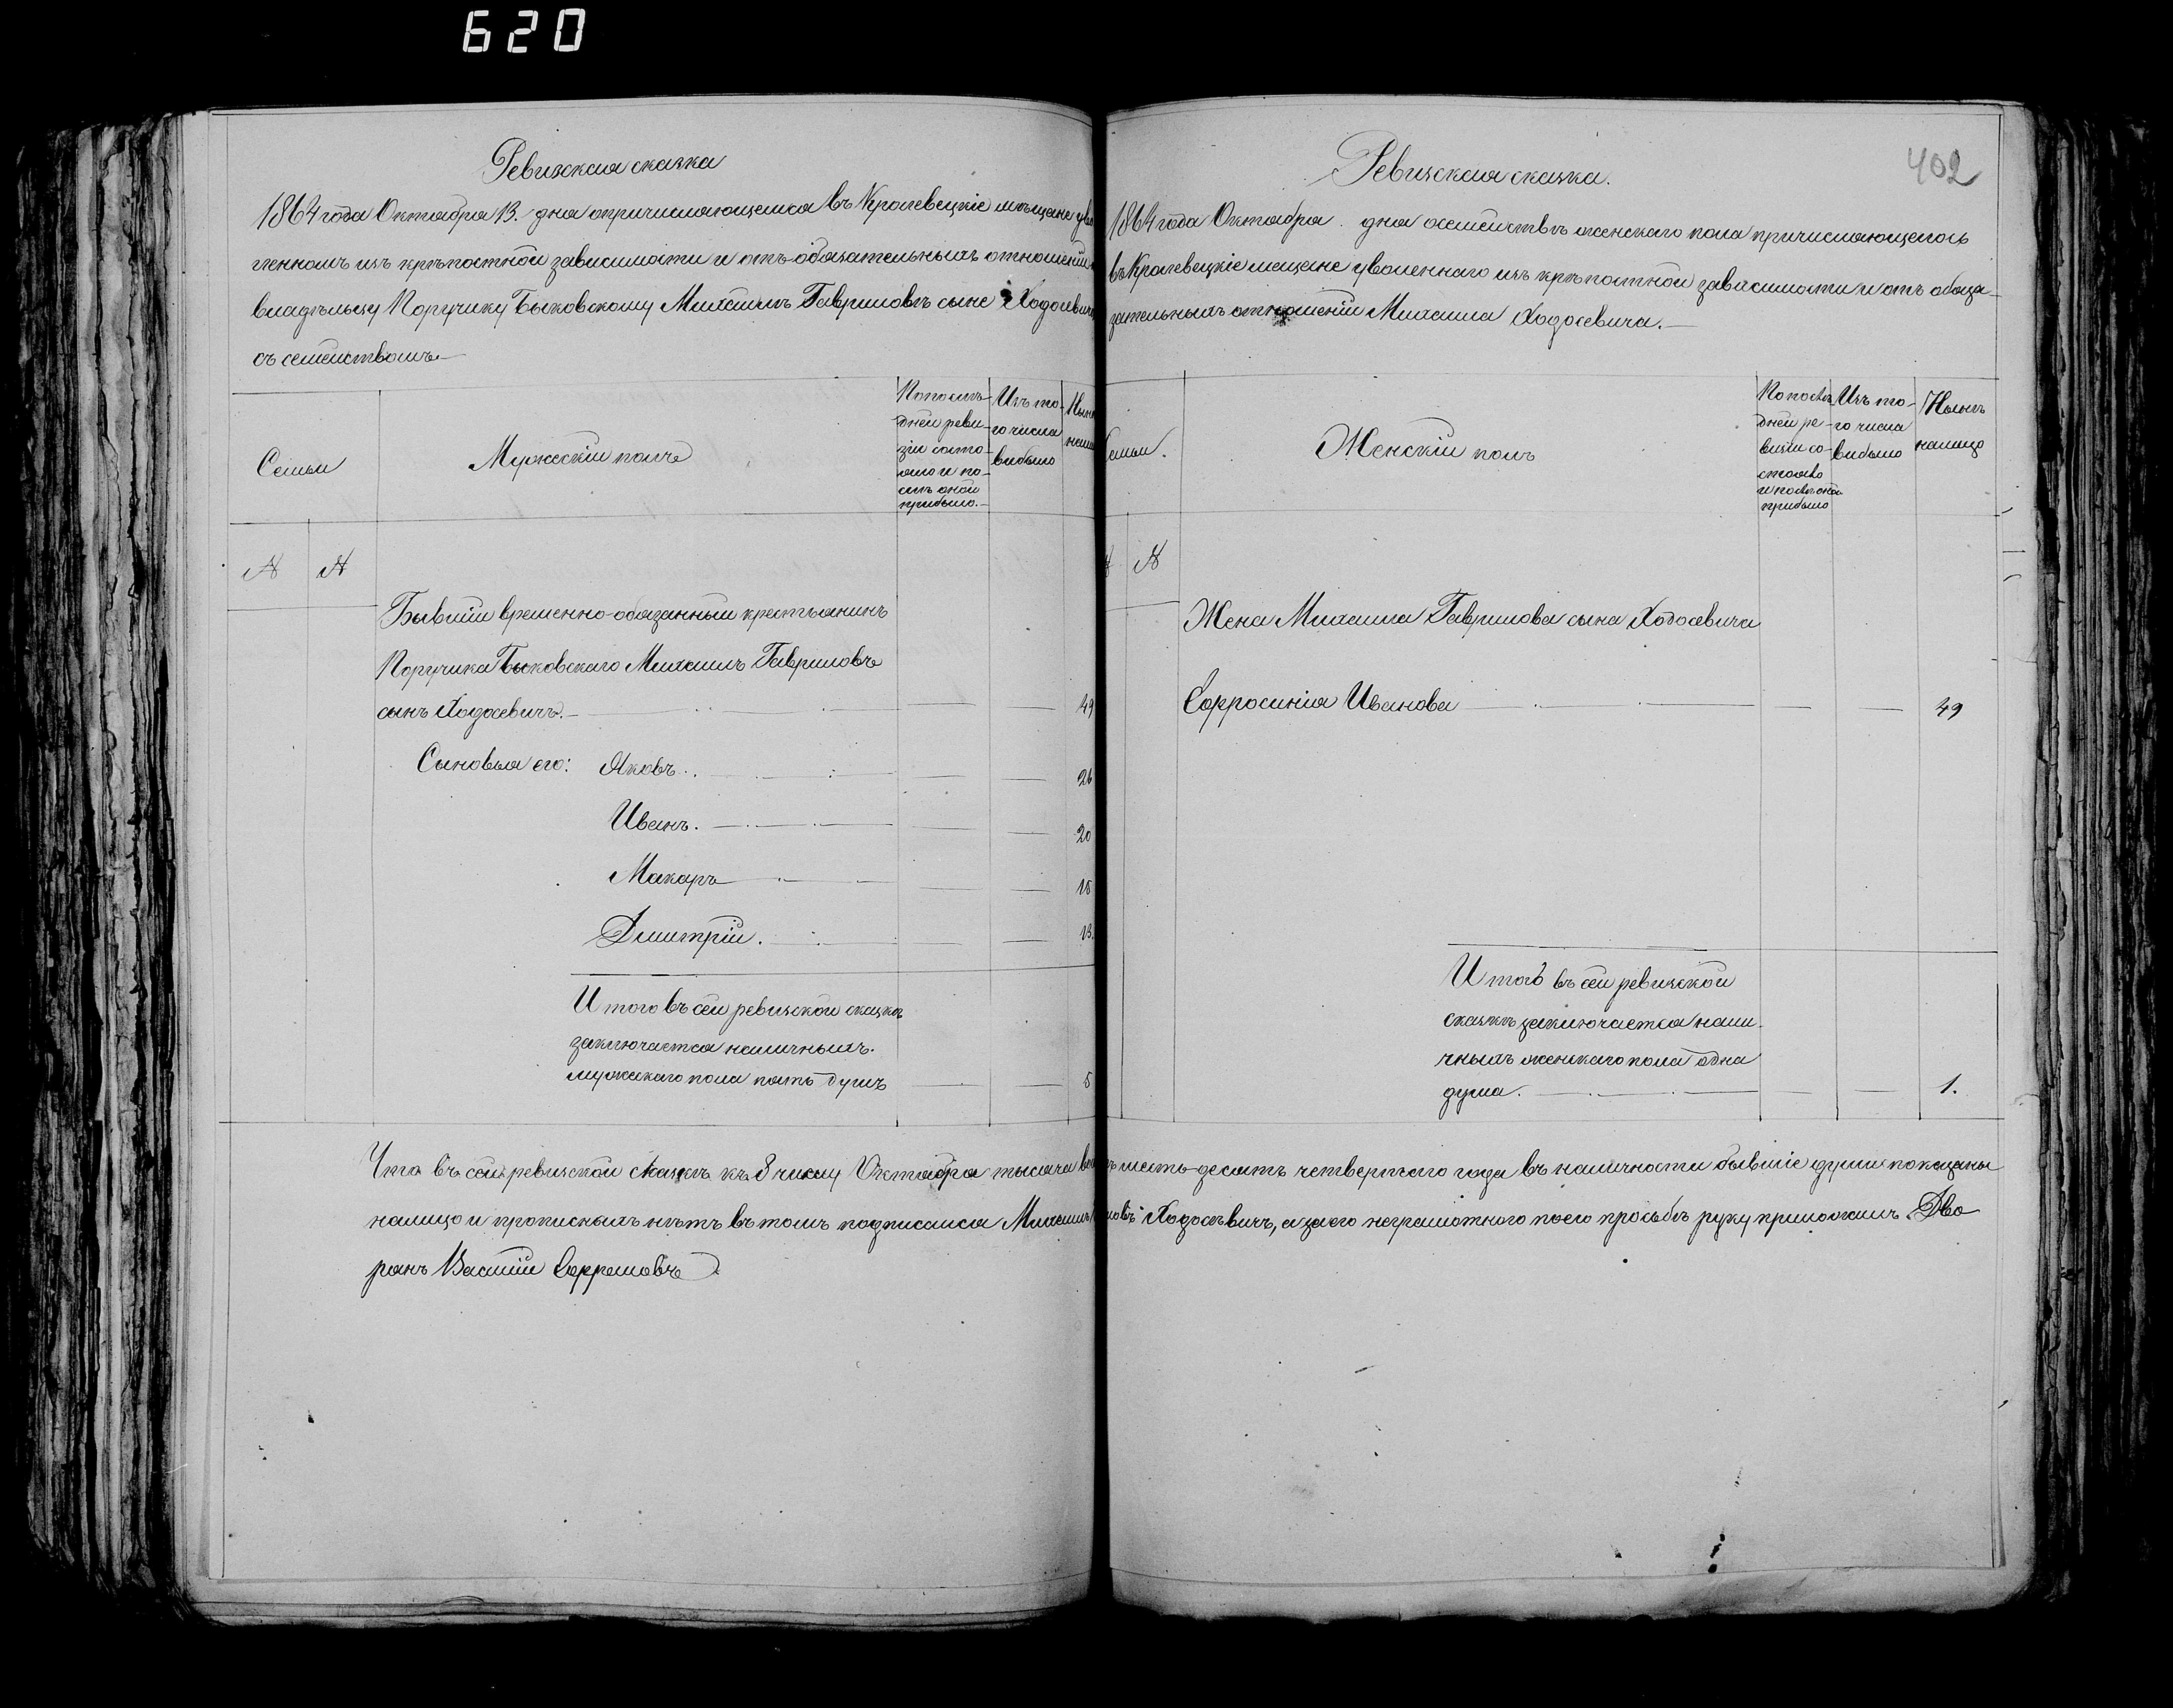 620
Ревизская сказка
1864 года Октября 13. дня о причисляющемся въ Кролевецкіе мѣщане уво
ленномъ изъ крѣпостной зависимости и отъ обязательныхъ отношеній
владѣльцу Поручику Быковскому Михаилѣ Гавриловѣ сынѣ Ходосевичѣ
съ семействомъ.—
Семьи
Мужескій полъ
По послѣ-
дней реви-
зіи состо-
яло и по-
слѣ оной
прибыло.—
Изъ то-
го числа
выбыло
Нынѣ
нали
№ №
Бывшій временно-обязанный крестьянинъ
Поручика Быковскаго Михаилъ Гавриловъ
сынъ Ходосевичъ.— 49
Сыновья его: Яковъ. 26
Иванъ. 20
Макаръ 18
Дмитрій. 13.
Итого въ сей ревизской сказкѣ
заключается наличныхъ
мужескаго пола пять душъ 5
402
Ревизская сказка.
1864 года Октября . дня о семействѣ женскаго пола причисляющегося
въ Кролевецкіе мещане уволеннаго изъ крѣпостной зависимости и отъ обяза-
зательныхъ отношеній Михаила Ходосевича.—
Семьи.
Женскій полъ
По послѣ
дней ре-
визіи со-
стояло
и послѣ оной
прибыло
Изъ то-
го числа
выбыло
Нынѣ
налицо
№ №
Жена Михаила Гаврилова сына Ходосевича
Евфросинія Иванова 49
Итого въ сей ревизской
сказкѣ заключается нали-
чныхъ женскаго пола одна
душа. 1.
Что въ сей ревизской сказкѣ къ 8 числу Октября тысяча шесть-десятъ четвертаго года въ наличности бывшіе души показаны
налицо и прописныхъ нѣтъ въ томъ подписался Михаилъ Ходосѣвичъ, а за его неграмотного по его просьбѣ руку приложилъ Дво
рянъ Василій Ефремовъ